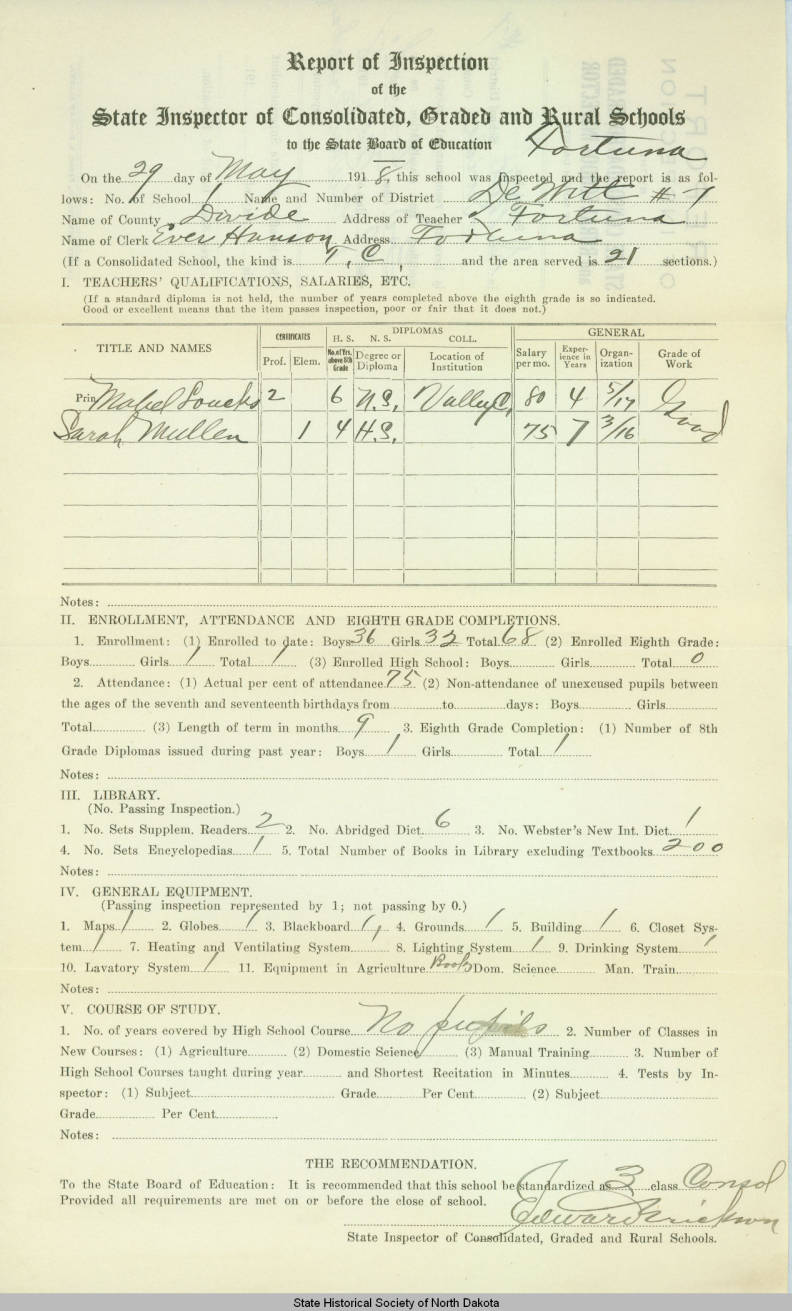 Report of Inspection
of the
State Inspector of Consolidated, Graded and Rural Schools
to the State Board of Education Fortuna
On the 29 day of May 1918, this school was inspected and the report is as fol-
lows: No. of School 1 Name and Number of District De Witt # 7
Name of County Divide Address of Teacher Fortuna
Name of Clerk Ever Hanson Address Fortuna
(If a Consolidated School, the kind is T, C, and the area served is 21 sections.)
I. TEACHERS' QUALIFICATIONS, SALARIES, ETC.
(If a standard diploma is not held, the number of years completed above the eighth grade is so indicated.
Good or excellent means that the item passes inspection, poor or fair that it does not.)
TITLE AND NAMES CERTIFICATES Prof. Elem. DIPLOMAS H. S. N. S. COLL. No. of Yrs. above 8th Grade Degree or Diploma Location of Institution GENERAL Salary per mo. Exper-ience in Years Organ-ization Grade of Work
Prin Mabel Loucks 2 6 N.S. Valley C. 80 4 5/17 Good
Sarah Mullen 1 4 H.S. 75 7 3/16
Notes:
II. ENROLLMENT, ATTENDANCE AND EIGHTH GRADE COMPLETIONS.
1. Enrollment: (1) Enrolled to date: Boys 36 Girls 32 Total 68 (2) Enrolled Eighth Grade:
Boys Girls 1 Total 1 (3) Enrolled High School: Boys Girls Total 0
2. Attendance: (1) Actual per cent of attendance 75 (2) Non-attendance of unexcused pupils between
the ages of the seventh and seventeenth birthdays from to days: Boys Girls
Total (3) Length of term in months 9 3. Eighth Grade Completion: (1) Number of 8th
Grade Diplomas issued during past year: Boys 1 Girls Total 1
Notes:
III. LIBRARY.
(No. Passing Inspection.)
1. No. Sets Supplem. Readers 2 2. No. Abridged Dict. 6 3. No. Webster's New Int. Dict. 1
4. No. Sets Encyclopedias 1 5. Total Number of Books in Library excluding Textbooks 200
Notes:
IV. GENERAL EQUIPMENT.
(Passing inspection represented by 1; not passing by 0.)
1. Maps 1 2. Globes 1 3. Blackboard 1, 4. Grounds 1 5. Building 1 6. Closet Sys-
tem 1 7. Heating and Ventilating System 8. Lighting System 1 9. Drinking System 1
10. Lavatory System 1 11. Equipment in Agriculture Books Dom. Science Man. Train.
Notes:
V. COURSE OF STUDY.
1. No. of years covered by High School Course No pupils 2. Number of Classes in
New Courses: (1) Agriculture (2) Domestic Science (3) Manual Training 3. Number of
High School Courses taught during year and Shortest Recitation in Minutes 4. Tests by In-
spector: (1) Subject Grade Per Cent (2) Subject
Grade Per Cent
Notes:
THE RECOMMENDATION.
To the State Board of Education: It is recommended that this school be standardized as 3 class Consol
Provided all requirements are met on or before the close of school.
Edward Erickson
State Inspector of Consolidated, Graded and Rural Schools.
State Historical Society of North Dakota